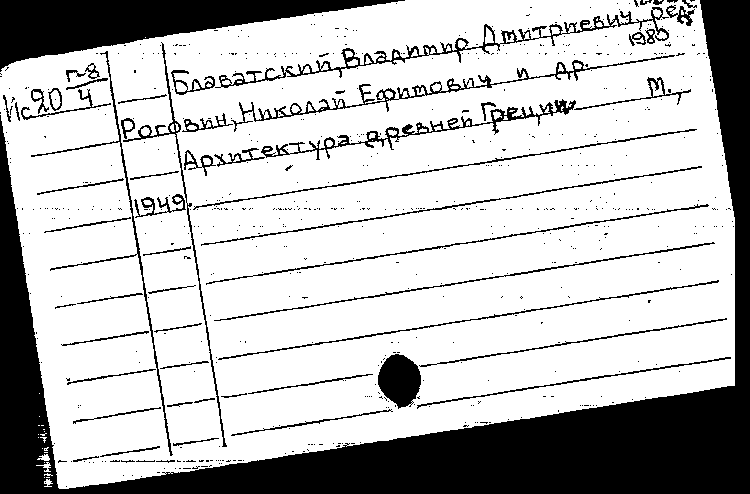 Блаватский, Владимир Дмитриевич, ред.
1980
Ис20 Г-8/4
Рогович, Николай Ефимович и др.
Архитектура древней Греции М.,
1949.